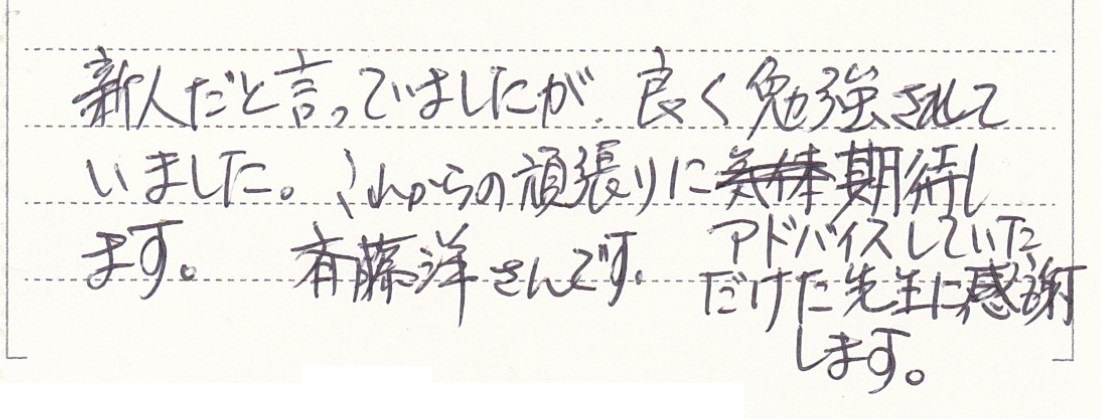 新人だと言っていましたが、良く勉強されて
いました。これからの頑張りに期待し
ます。 斉藤洋さんです。
アドバイスしていた
だけた先生に感謝
します。